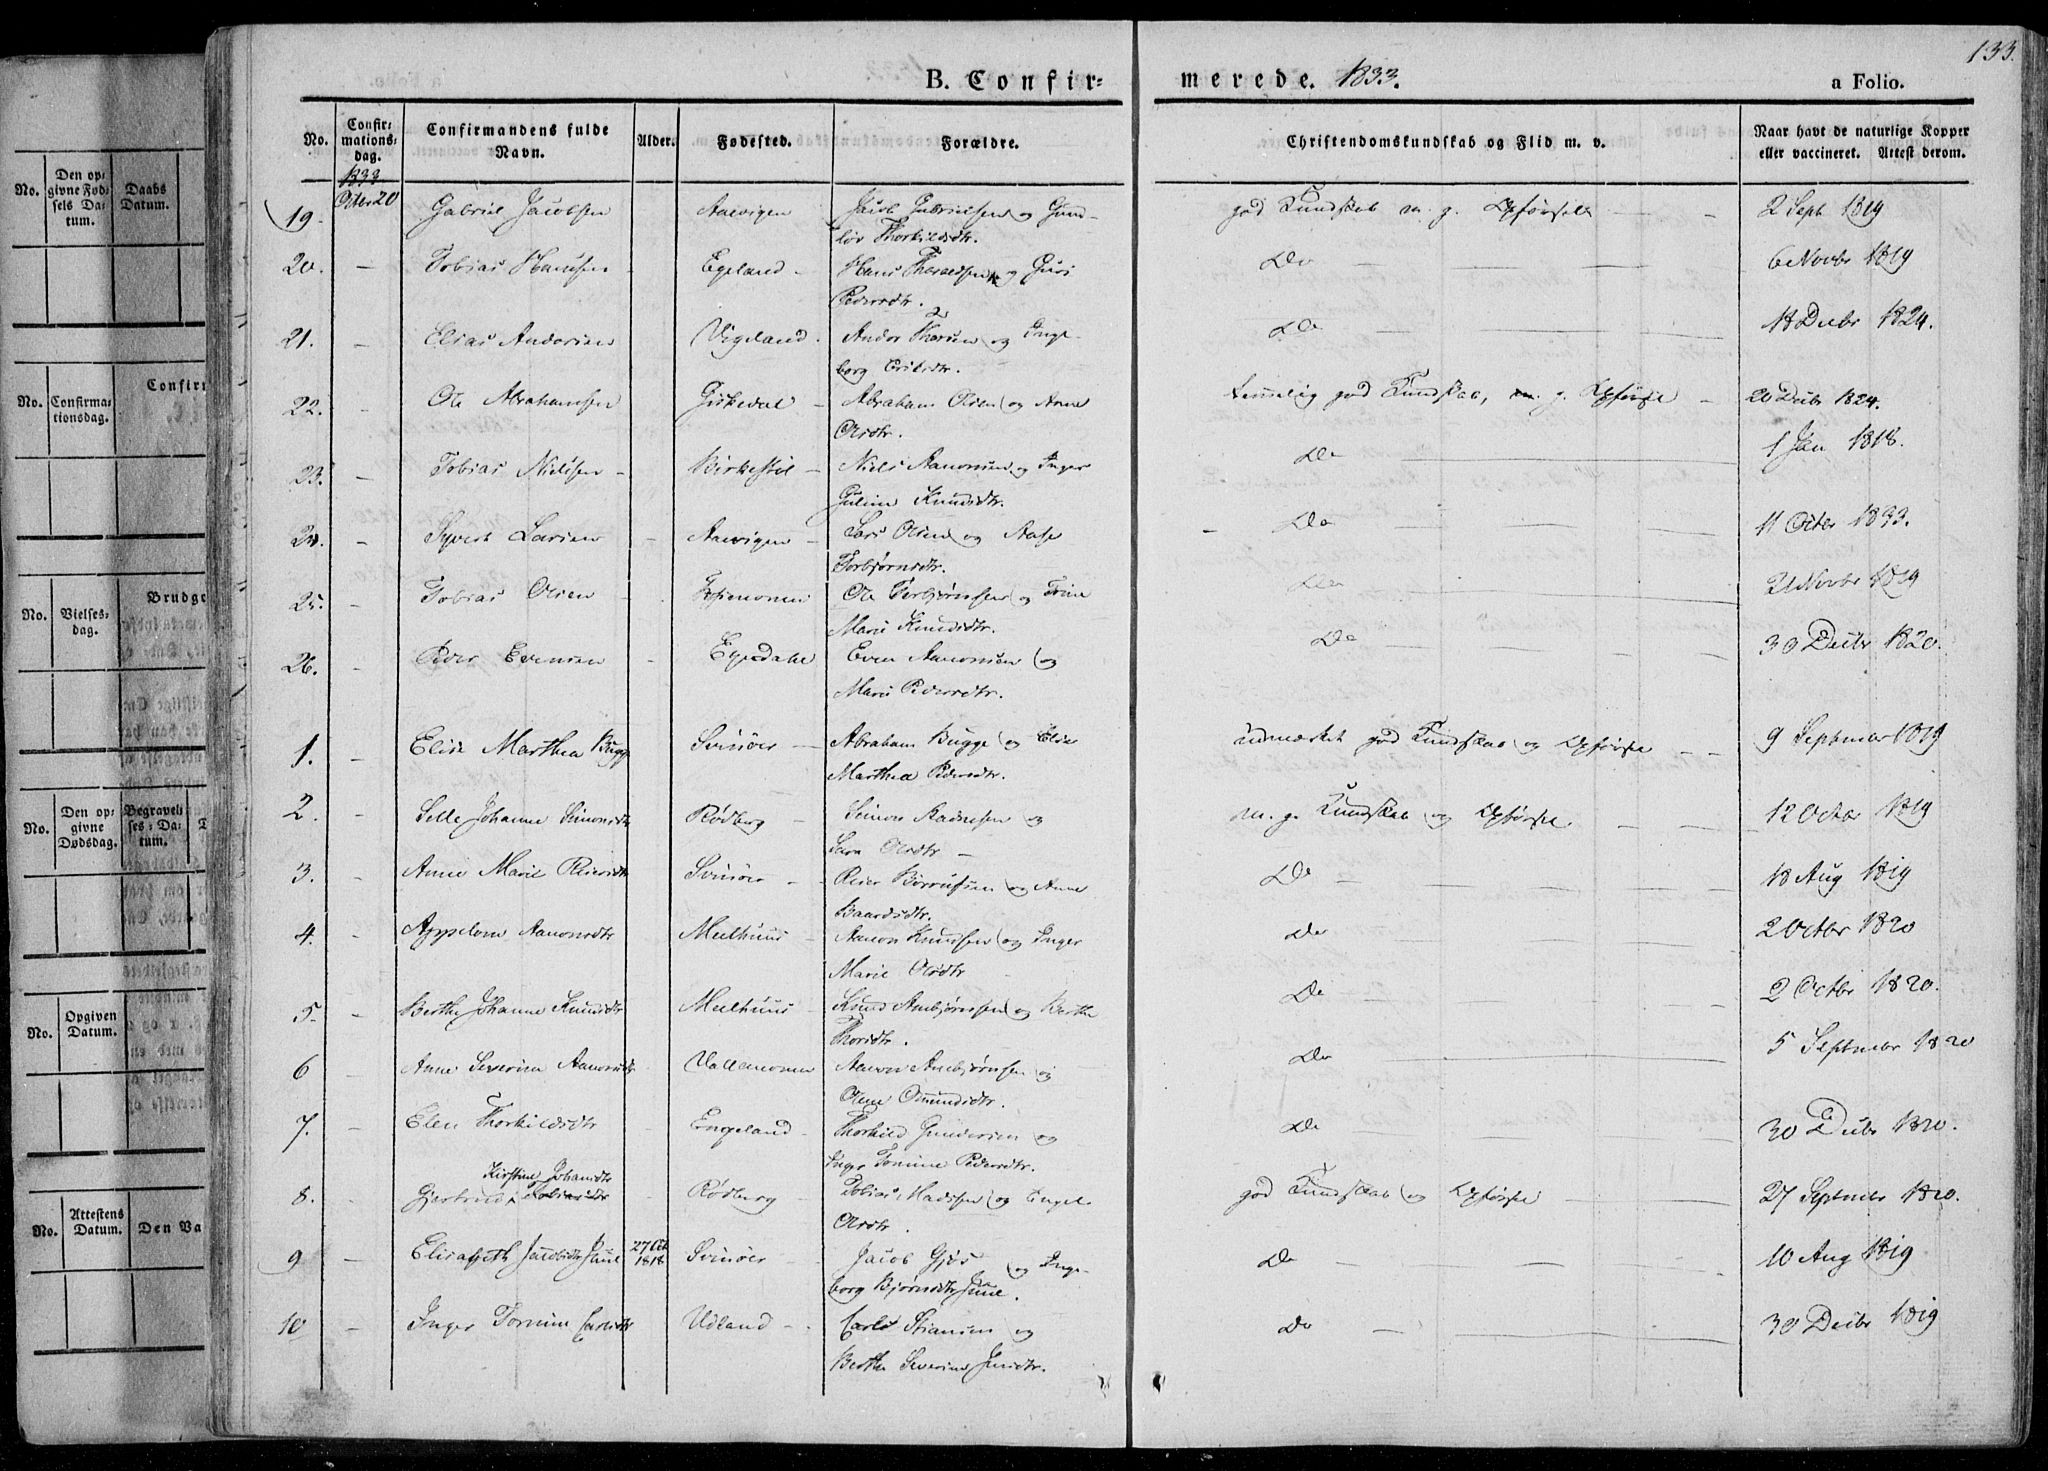 133.
B. Confir- merede. 1833. a Folio.
No. Confirmationsdag. Confirmandens fulde Navn. Alder. Fødested. Forældre. Christendomskundskab og Flid m. v. Naar havt de naturlige Kopper eller vaccineret. Attest derom.
1833
19. Octbr 20 Gabriel Jacobsen Aavigen Jacob Gabrielsen og Gund- god Kundskab m. g. Opførsel 2 Sept 1819
lør Thorkildsdtr.
20. – Tobias Hansen Egeland – Hans og Guri Do 6 Novbr 1819
Pedersdtr.
21. – Elias Andersen Vigeland. Ander og Inge- Do 18 Decbr 1824.
borg Eriksdtr.
22. – Ole Abrahamsen Girkedal – Abraham Olsen og Anne temmelig god Kundskab, m. g. Opførsel – 20 Decbr 1824.
Olsdtr.
23. – Tobias Nielsen – Birkestøl – Niels Aanonsen og Inger Do 1 Jan 1818.
Guline Knudsdtr.
24. – Syvert Larsen – Aavigen – Lars Olsen og Aase Do 11 Octbr 1833.
Torbjørnsdtr.
25. – Tobias Olsen Ole Torbjørnsen og Trine Do 21 Novbr 1819
Marie Knudsdtr.
26. – Peder Evensen – Egesdahl Even Aanonsen og Do 30 Decbr 1820.
Marie Pedersdtr.
1. – Elise Marthea Bugge Svinøer – Abraham Bugge og Elise udmærket god Kundskab og Opførsel – – 9 September 1819
Marthea Pedersdtr.
2. – Selle Johanne Simonsdtr Rødberg – Simon og m. g. Kundskab og Opførsel – – 12 Octbr 1819
Sara Olsdtr –
3. – Anne Marie Reiersdtr Svinøer – Reier Børrufsen og Anne Do – 18 Aug 1819
Baardsdtr.
4. – Appelone Aanonsdtr Meelhuus – Aanon Knudsen og Inger Do 2 Octbr 1820
Marie Olsdtr
5. – Berthe Johanne Knudsdtr Meelhuus – Knud Anbjørnsen og Berthe Do 2 Octbr 1820.
Thorsdtr.
6 – Anne Severine Aanonsdtr Vallemonen Aanon Anbjørnsen og Do 5 September 1820
Olene Omundsdtr.
7. – Elen Thorkildsdtr Engeland – Thorkild Gundersen og Do 30 Decbr 1820.
Inger Tomine Pedersdtr.
Kirstine Johansdtr
8. – Gjertrud Tobiasdtr – Rødberg – Tobias Madssen og Engel god Kundskab og Opførsel 27 September 1820.
Olsdtr.
9 – Elisabeth Jacobsdtr Juul 27 Oct 1818 Svinøer – Jacob Gjøs og Inge- Do – 10 Aug 1819
borg Bjørnsdtr Juul.
10 – Inger Tomine Carlsdtr Udland – Carl Stiansen og Do – 30 Decbr 1819
Berthe Severine Jensdtr.
No. Den opgivne Fødsels Datum. Daabs Datum.
No. Confirmationsdag. Confir
No. Vielsesdag. Brudge
No. Den opgivne Dødsdag. Begravelses-Datum.
No. Opgiven Datum.
No. Attestens Datum. Den Va